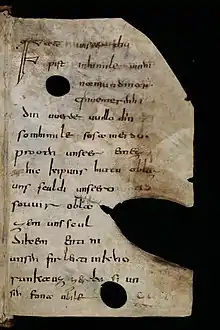 Fater unser thu
pist in himile uuihi
namun dinan
qhueme rihhi
din uuerde uuillo diin
so in himile sosa in erdu
prooth unseer emez
hic kip uns hiutu oblaz
uns sculdi unsero so
uuir oblaz
em uns scul
dikem enti ni
unsih firleiti in kho
runka uz er losi un
sih fona ubile